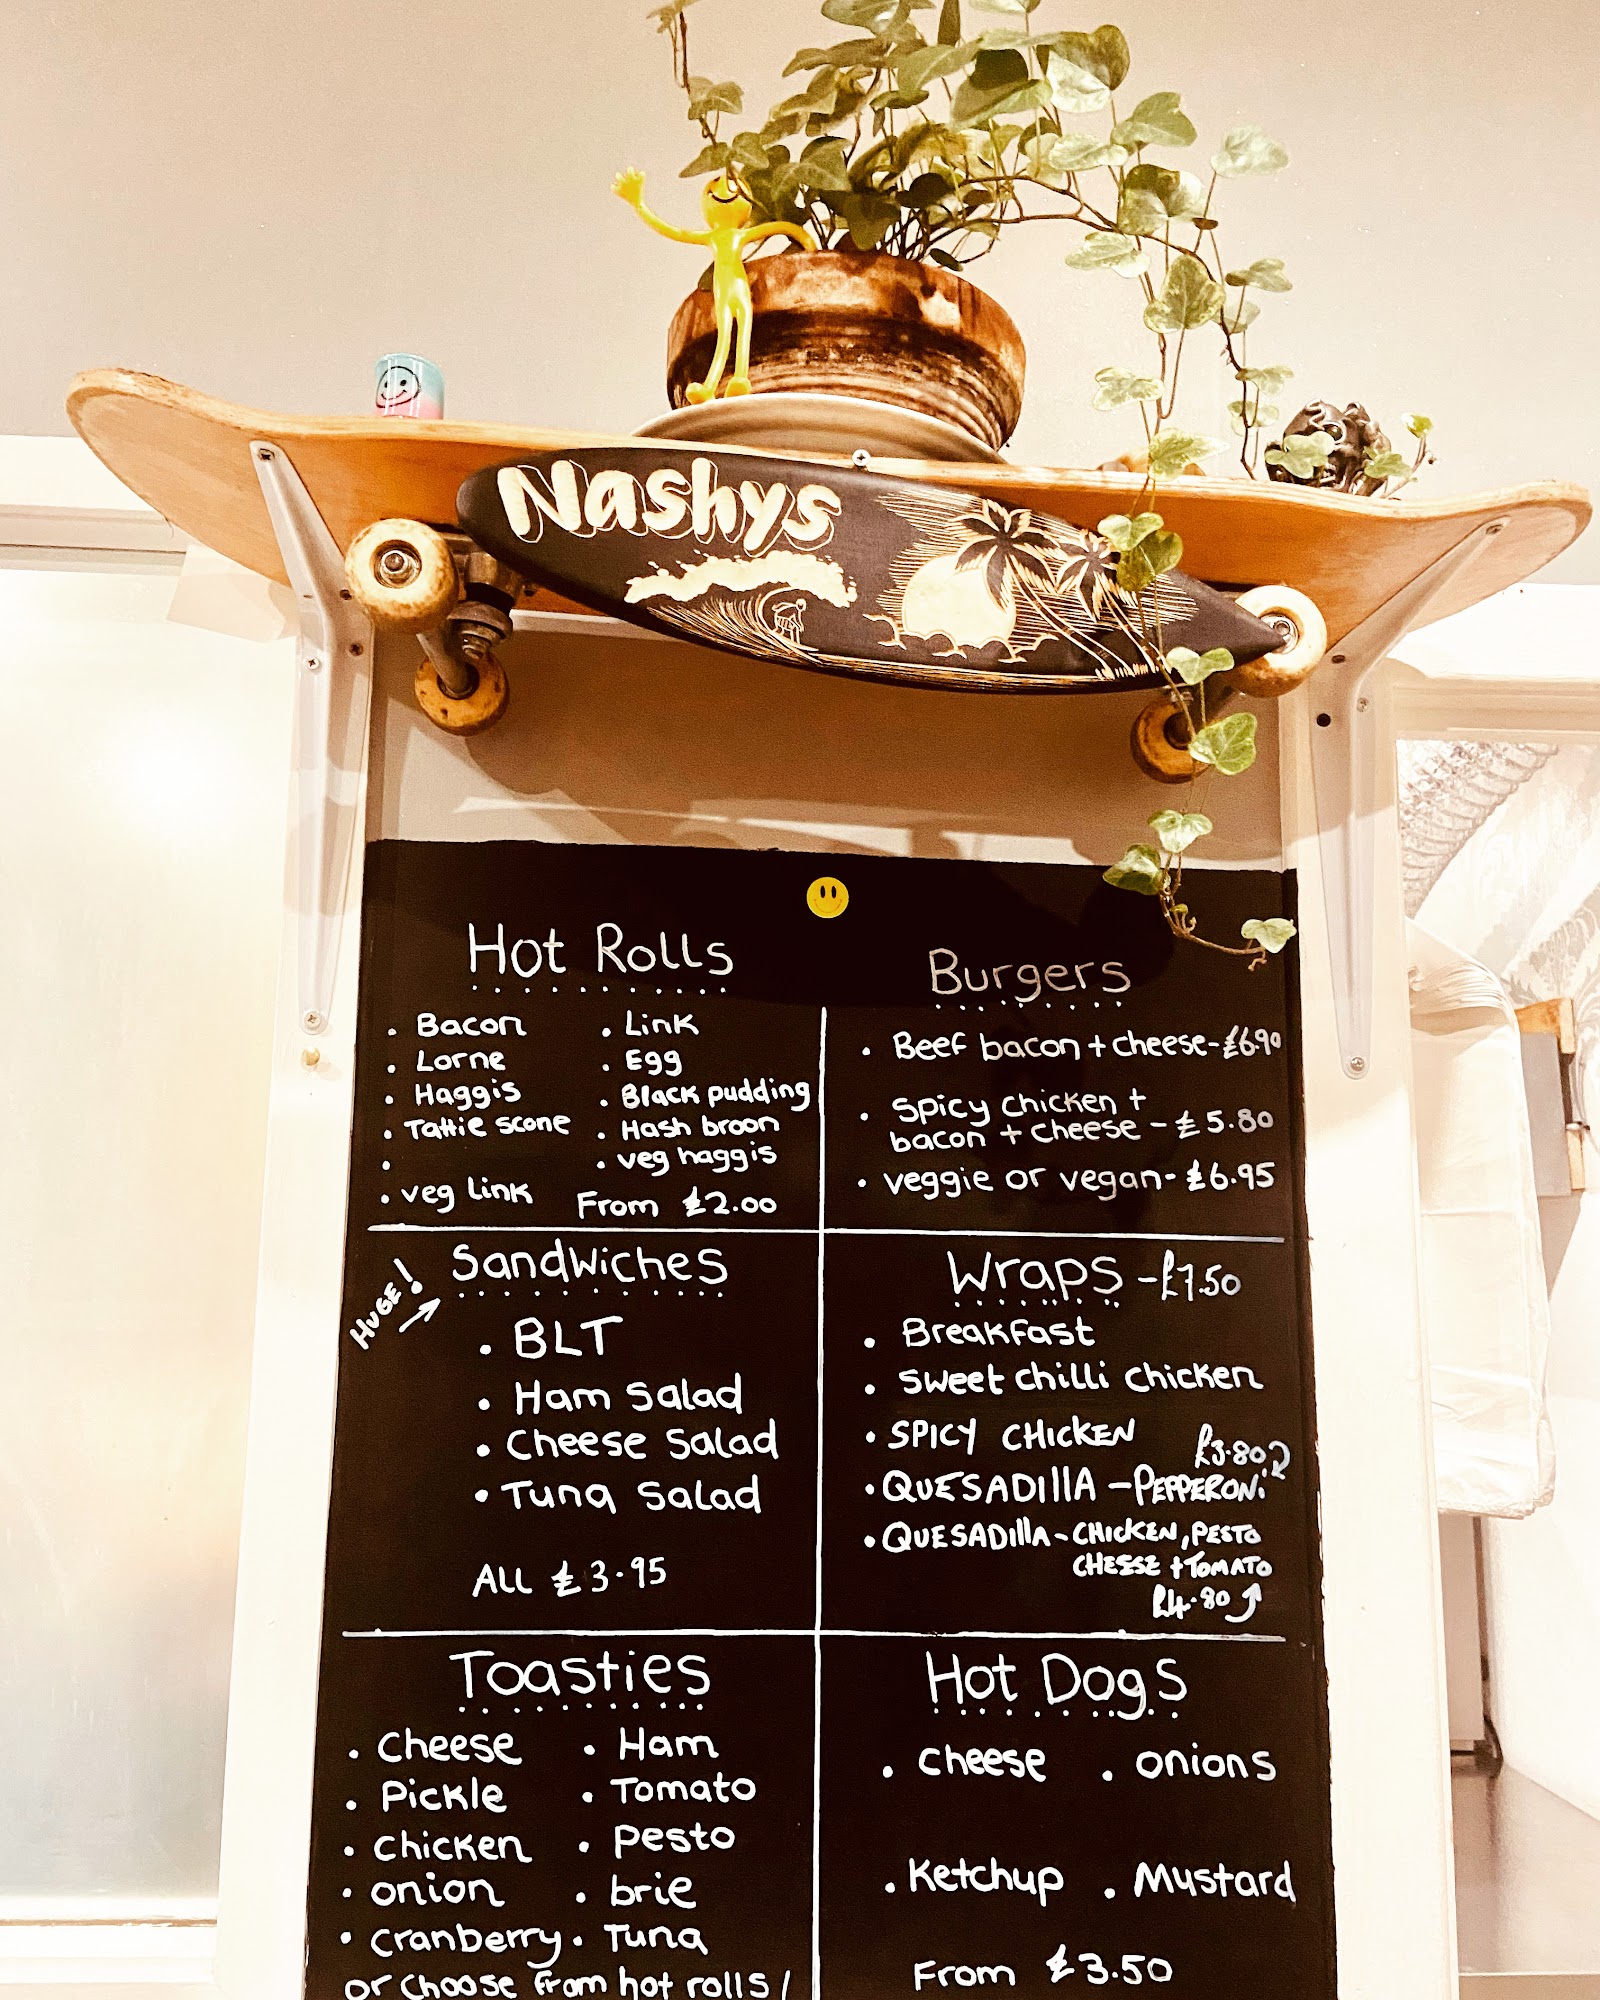 Nashys
Hot Rolls
• Bacon
• Lorne
• Haggis
• Tattie scone
•
• veg link
• Link
• Egg
• Black pudding
• Hash broon
• veg haggis
From £2.00
Burgers
• Beef bacon + cheese - £6.90
• Spicy chicken +
bacon + cheese - £5.80
• veggie or vegan - £6.95
HUGE!
Sandwiches
• BLT
• Ham Salad
• Cheese Salad
• Tuna Salad
ALL £3.95
Wraps - £7.50
• Breakfast
• sweet chilli chicken
• SPICY CHICKEN
£3.80
• QUESADIllA - PEPPERONi
• QUESADIllA - CHICKEN, PESTO
CHEESE + TOMATO
£4.80
Toasties
• Cheese
• Pickle
• Chicken
• onion
• Cranberry
• Ham
• Tomato
• Pesto
• brie
• Tuna
or choose from hot rolls /
Hot Dogs
• Cheese • onions
• Ketchup • Mustard
From £3.50